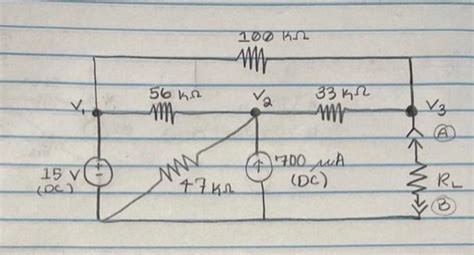 100 KΩ
56 KΩ
V2
33 KΩ
V1
V3
A
+
-
15 V
(DC)
47 KΩ
700 μA
(DC)
RL
B